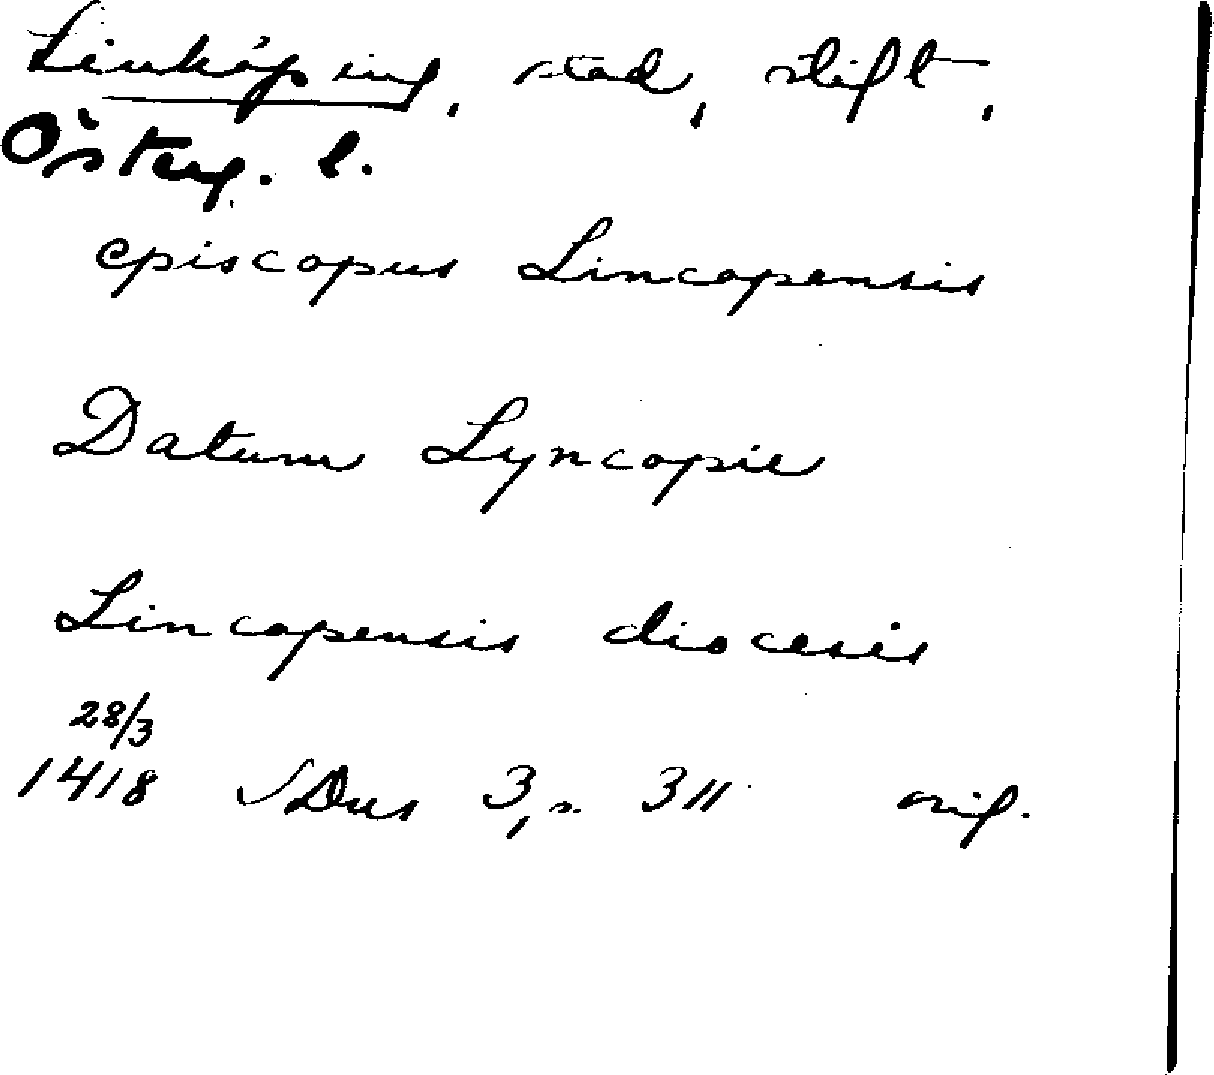 Linköping, stad, stift,
Österg. l.
episcopus Lincopensis
Datum Lyncopie
Lincopensis diocesis
28/3
1418 SDns 3, s. 311 orig.